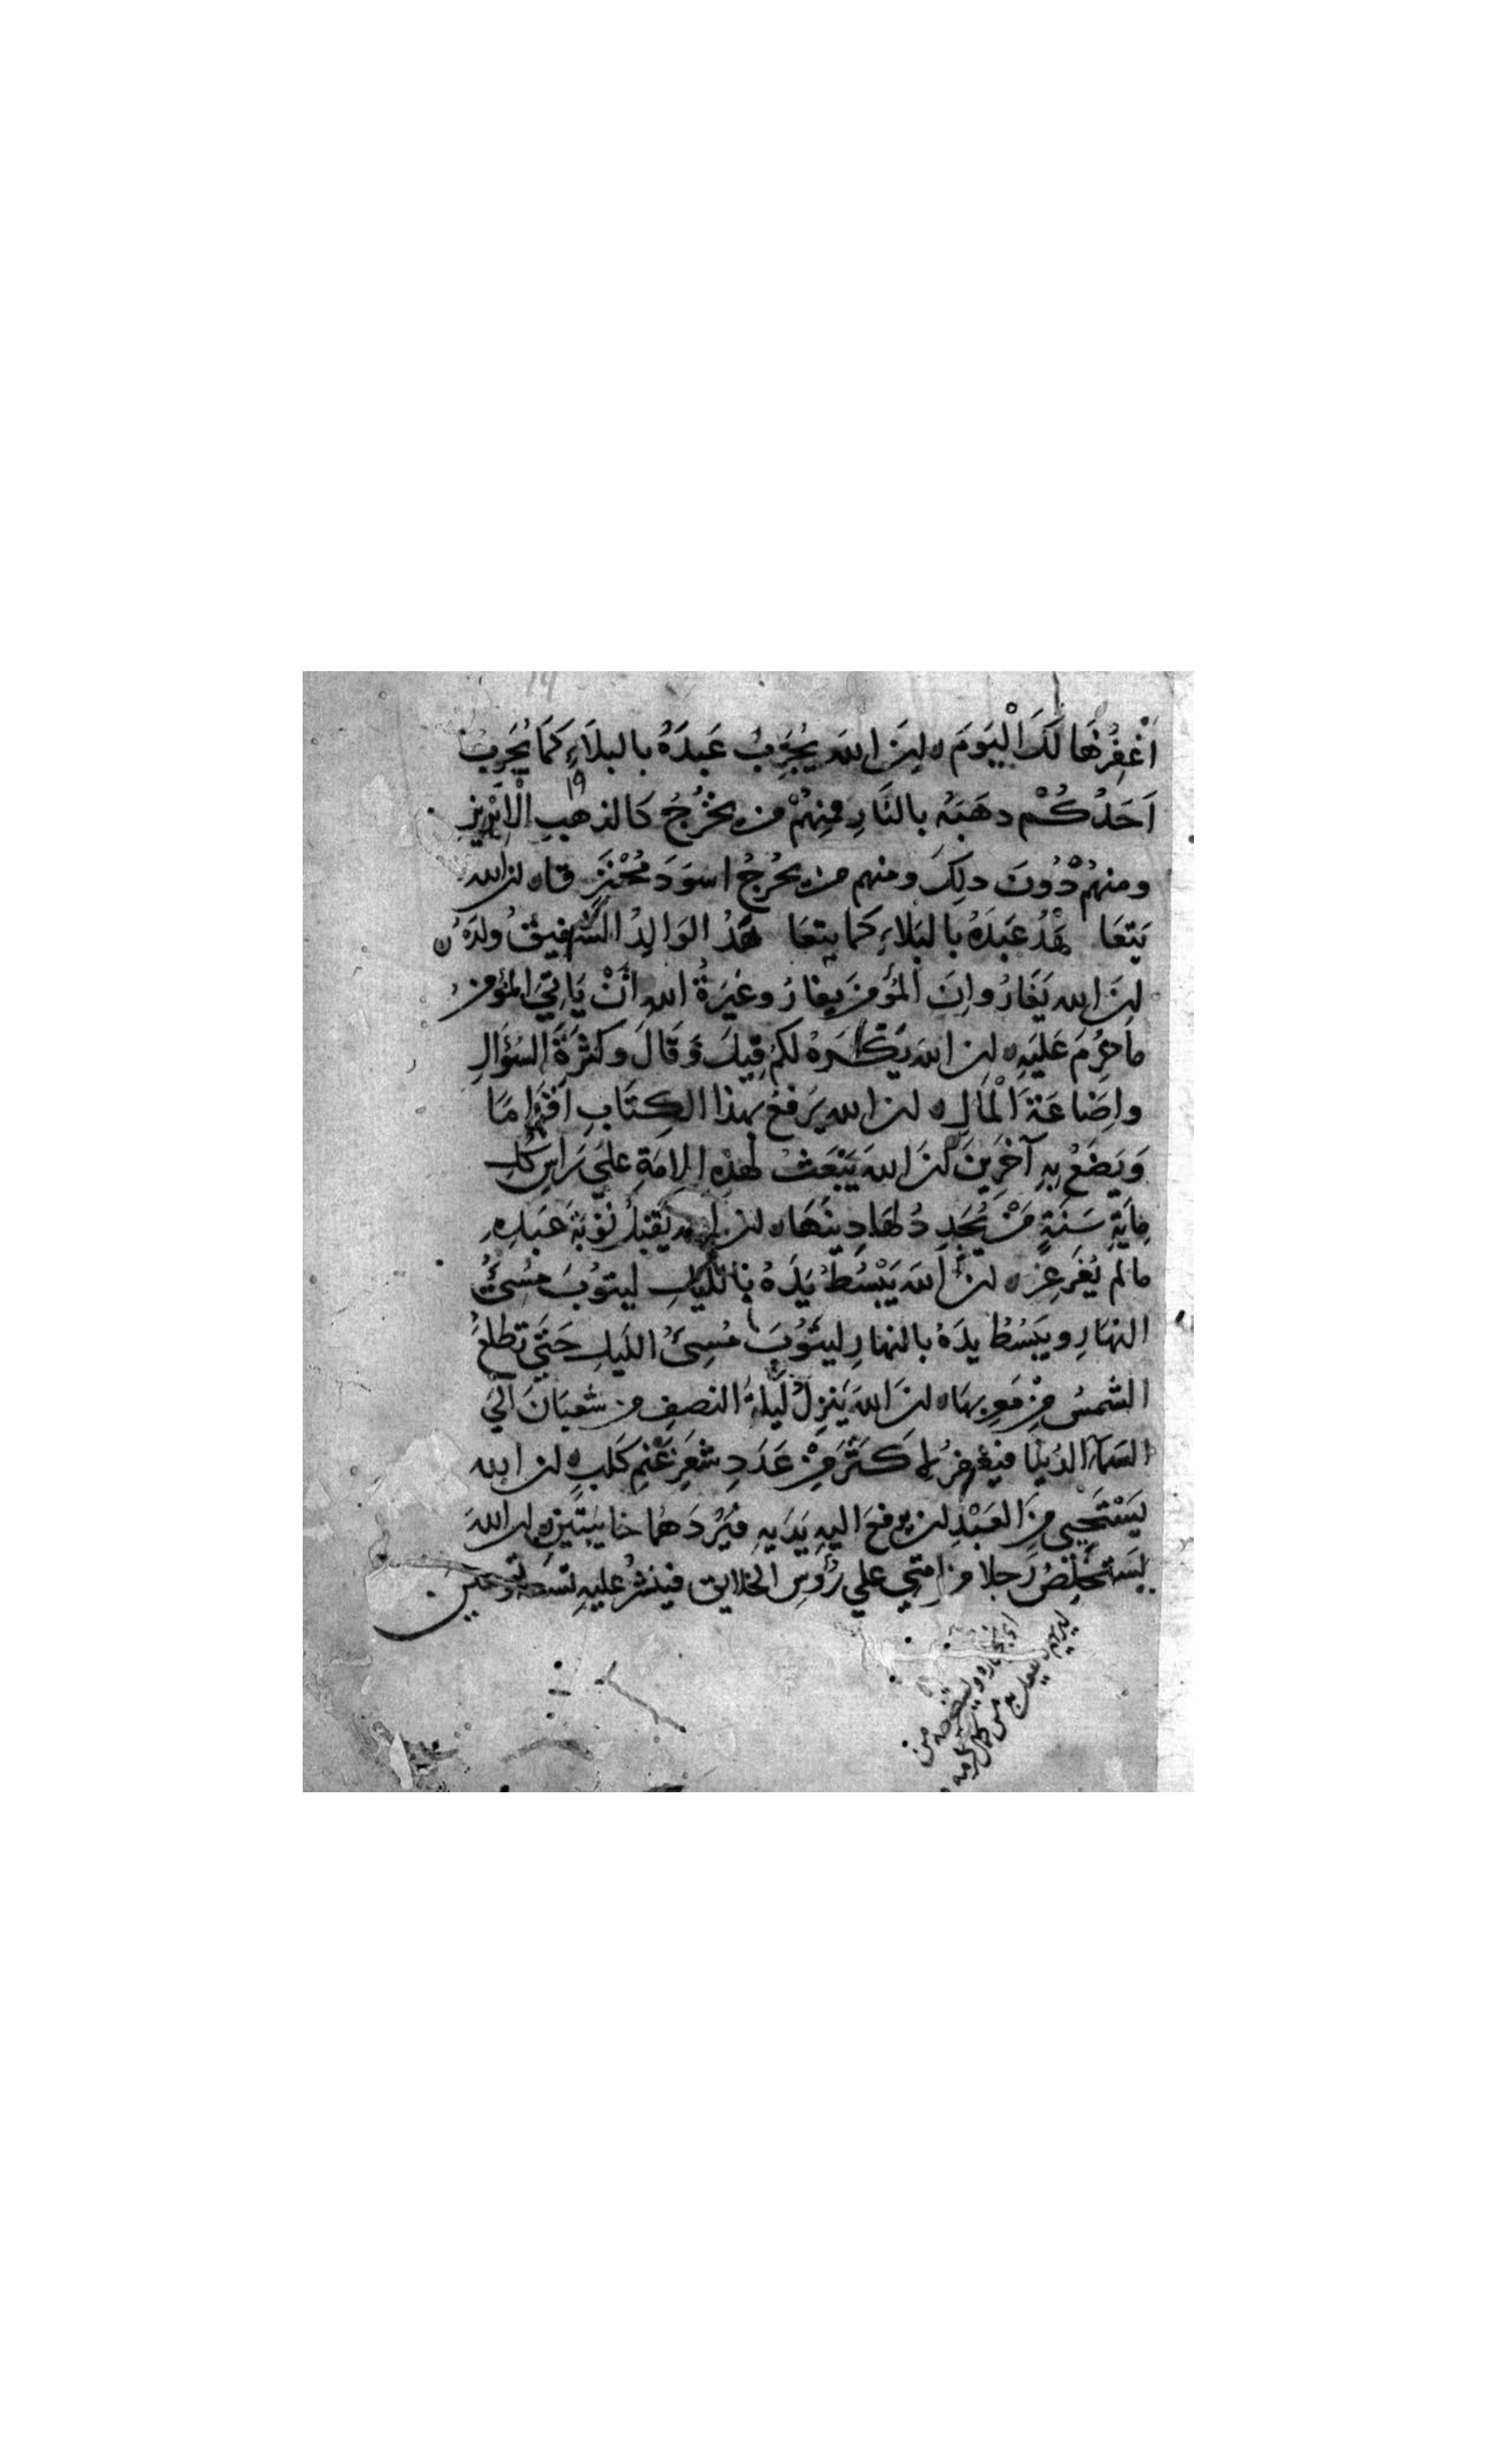 اَغْفِرُهَا لَكَ الْيَوْمَ ه اِنَ الله يُجَرِبُ عَبدَهُ بالبلَاءِ كَمَا يُجَرِبُ
اَحَدُكُمْ دهَبَهُ بالنَارِ فمِنهُمْ من يخْرُجُ كالذهبِ الْاِبْرِيزِ
ومنهُمْ دُونَ دلِكَ ومنهم من يخرُجُ اسوَدَ مُحْتَرِق ه ان الله
يَتعَاهَدُ عَبدَهُ بالبَلاءِ كما يتعَاهَدُ الوَالِدُ الشَفِيقُ ولدَهُ ه
اِنَ الله يَغَارُ واِنَ المُؤمِنَ يغارُ وغَيرَةُ اللهِ اَنْ يَاتِيَ المؤمن
ما حَرَمَ عَلَيهِ ه ان الله يَكْرَهُ لكم قِيلَ وَقَالَ وكثرَةَ السُؤَالِ
واِضَاعَةَ الْمَالِ ه ان الله يَرفعُ بهذا الكِتَابِ اَقْوَامًا
وَيَضَعُ بِهِ آخَرِينَ ه انَ اللهَ يَبْعَثُ لهَذِهِ الامَةِ عَلَي رَاسِ كُلِ
مِايَةِ سَنَةٍ مَنْ يُجَدِدُ لهَا دِينَهَا ه ان الله يَقبَلُ تَوْبَةَ عَبدِهِ
مالم يُغَرغِر ه ان الله يَبْسُطُ يَدَهُ بالليلِ ليتوُبَ مُسِئُ
النهَارِ ويَبسُطُ يدَهُ بالنهارِ ليتُوبَ مُسِئُ الليلِ حَتَي تطلعَ
الشمسُ مِنْ مَغرِبهَا ه انَ اللهَ يَنزِلُ لَيلةَ النصفِ من شعبَانَ اِلَي
السَمَاءِ الدُنيَا فيَغفِرُ لِاَكثَرَ مِنْ عَدَدِ شَعَرِ غنَمِ كَلبٍ ه ان الله
ليَسْتَحيِي مِنَ العَبْدِ ان يرفعَ اليهِ يَدَيهِ فيَرُدَهُمَا خايبَتَينِ ه ان اللهَ
ليستَخلِصُ رَجلا من امتي علي رُؤُسِ الخلايق فينشُرُ عليهِ تسعَة وتسعين